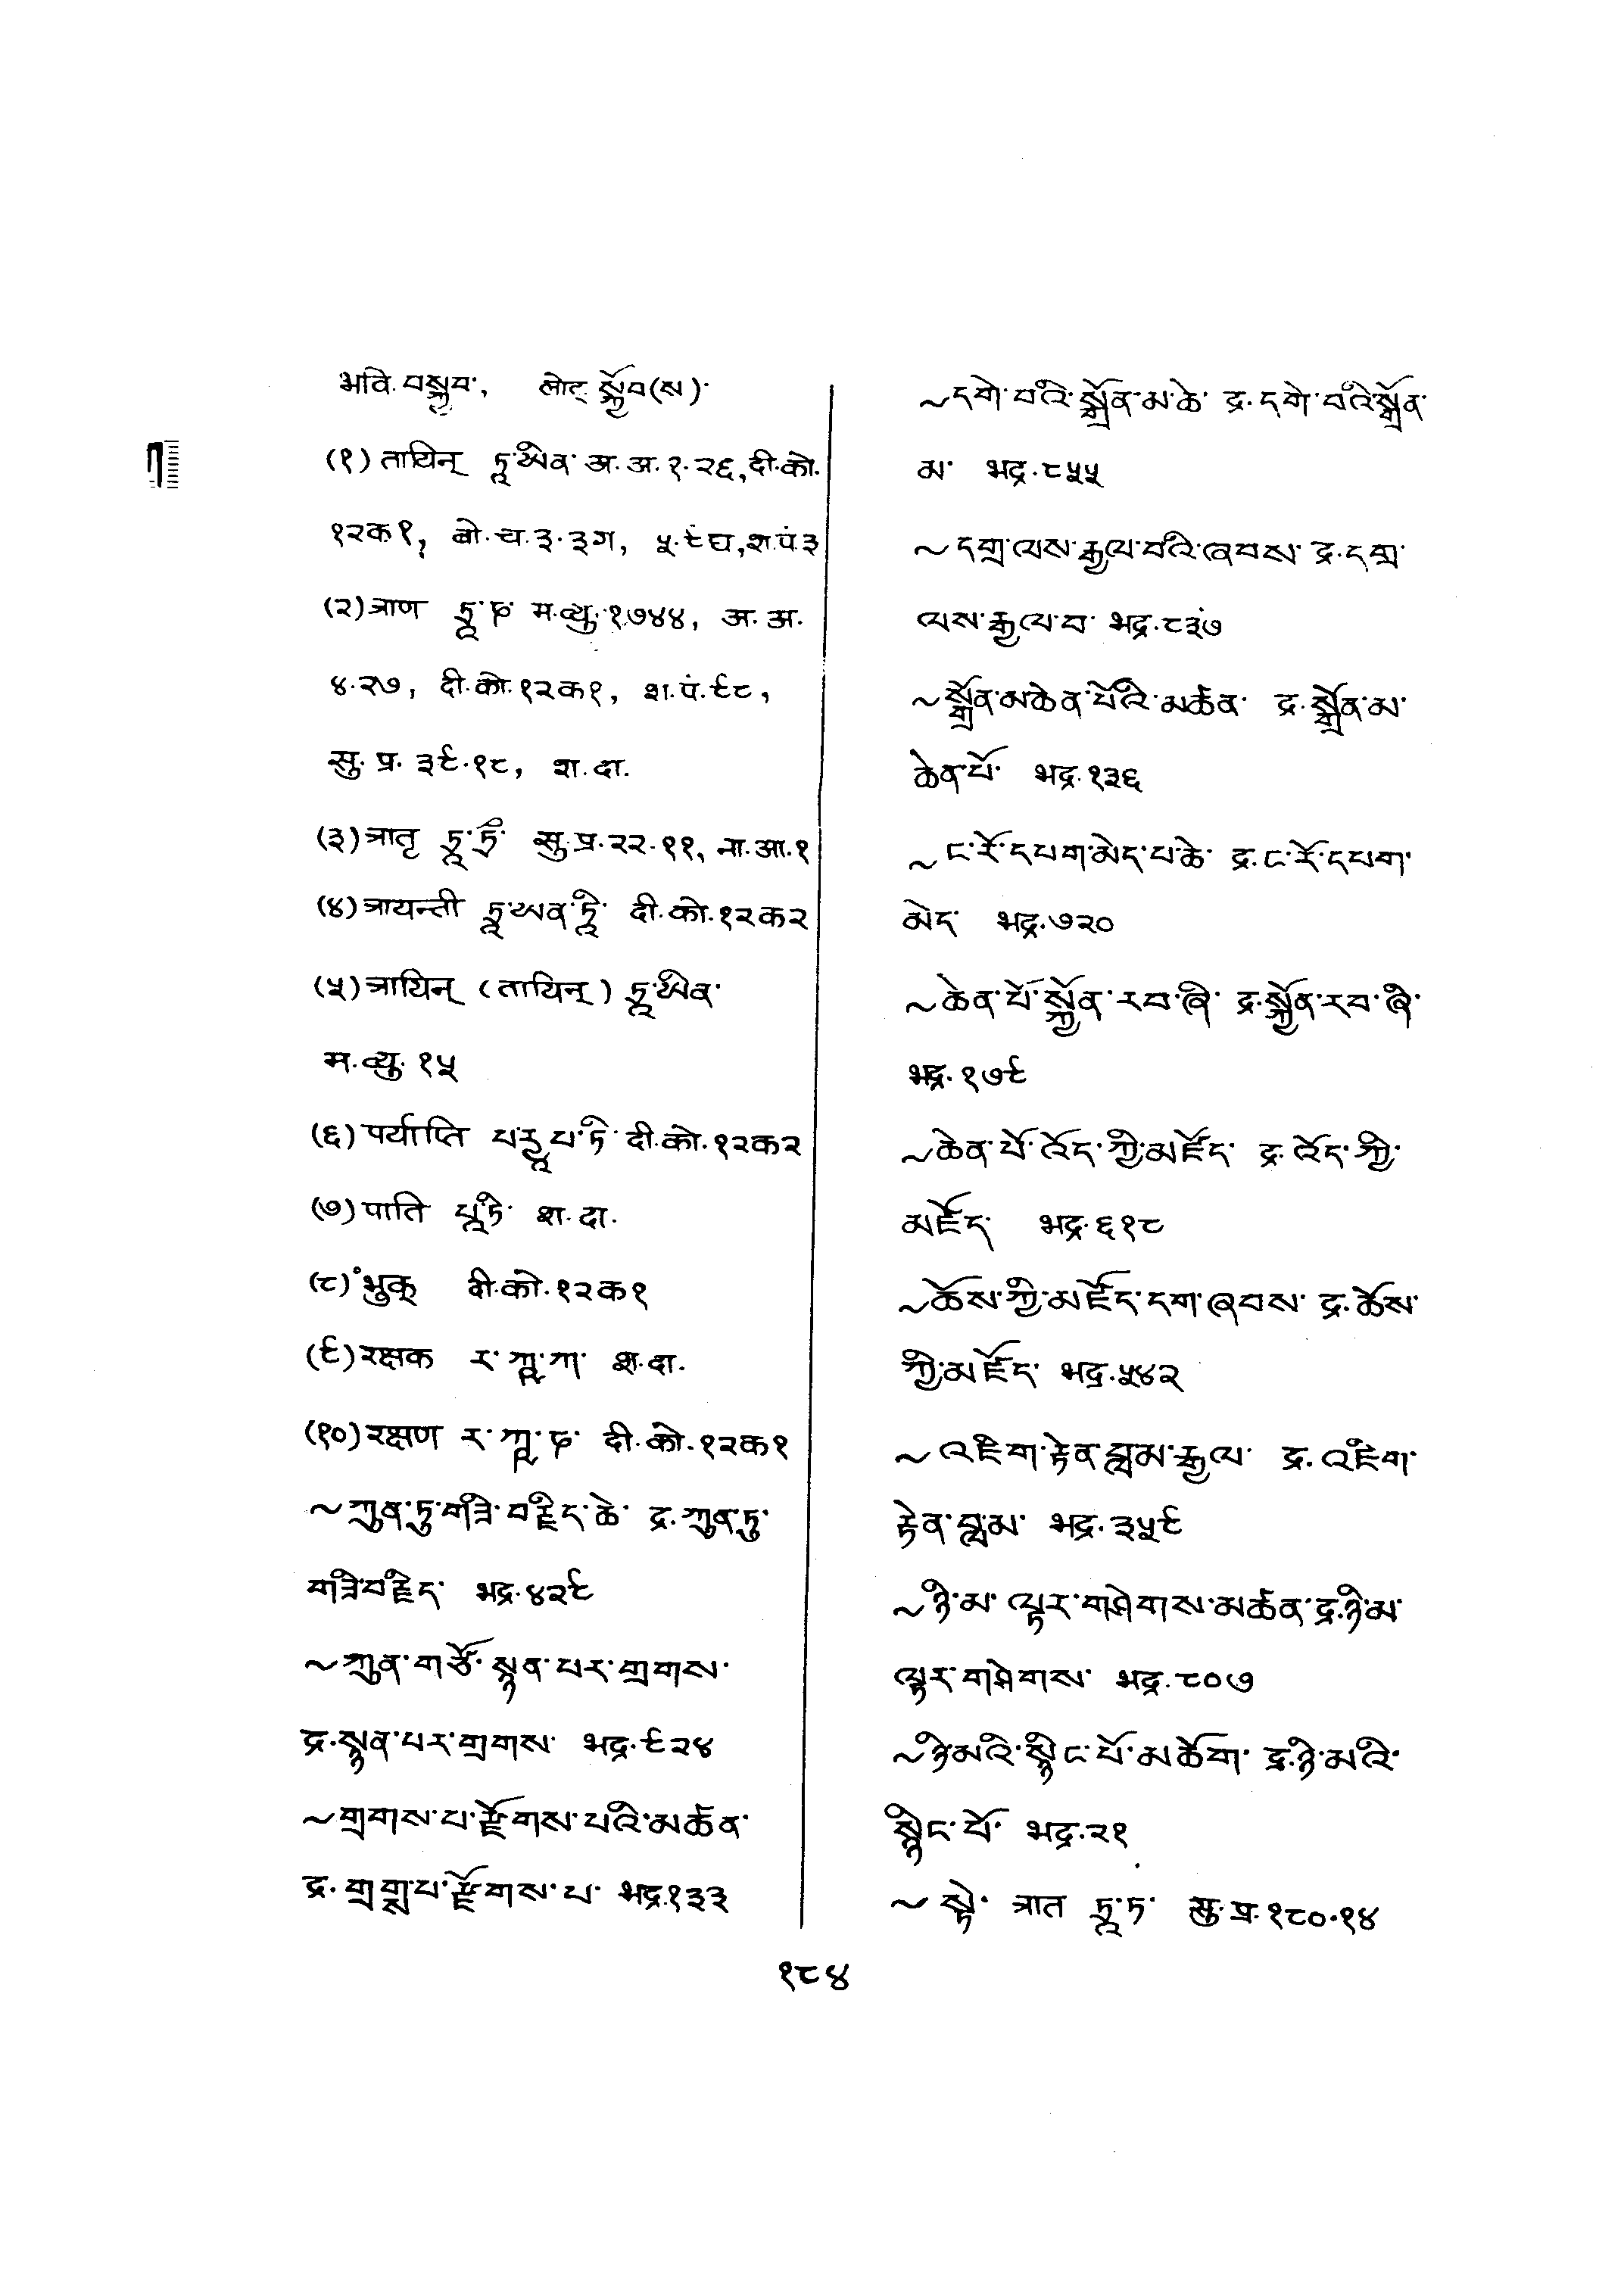 भवि. བསྐྱབ་, लोट् སྐྱོབ(ས)་
(१) तायिन् ཏཱ་ཡིན་ अ. अ. १. २६, दी. को.
१२क१, बो. च. ३. ३ग, ५. ९घ, श. पं. ३
(२) त्राण ཏྲཱ་ཎ་ म. व्यु. १७४४, अ. अ.
४. २७, दी. को. १२क१, श. पं. ९८,
सु. प्र. ३९. १८, श. दा.
(३) त्रातृ ཏྲཱ་ཏྲྀ་ सु. प्र. २२. ११, ना. आ. १
(४) त्रायन्ती ཏྲཱ་ཡན་ཏཱི་ दी. को. १२क२
(५) त्रायिन् (तायिन्) ཏྲཱ་ཡིན་
म. व्यु. १५
(६) पर्याप्ति པརྱཱ་པ་ཏི་ दी. को. १२क२
(७) पाति པཱ་ཏི་ श. दा.
(८) ॰भुक् दी. को. १२क१
(९) रक्षक ར་ཀྵ་ཀ་ श. दा.
(१०) रक्षण ར་ཀྵ་ཎ་ दी. को. १२क१
~ཀུན་ཏུ་གཟི་བརྗིད་ཆེ་ द्र. ཀུན་ཏུ་
གཟི་བརྗིད་ भद्र. ४२९
~ཀུན་གཙོ་སྙན་པར་གྲགས་
द्र. སྙན་པར་གྲགས་ भद्र. ९२४
~གྲགས་པ་རྫོགས་པའི་མཚན་
द्र. གྲགས་པ་རྫོགས་པ་ भद्र. १३३
~དགེ་བའི་སྒྲོན་མ་ཆེ་ द्र. དགེ་བའི་སྒྲོན་
མ་ भद्र. ८५५
~དགྲ་ལས་རྒྱལ་བའི་ཞབས་ द्र. དགྲ་
ལས་རྒྱལ་བ་ भद्र. ८३७
~སྒྲོན་མ་ཆེན་པོའི་མཚན་ द्र. སྒྲོན་མ་
ཆེན་པོ་ भद्र. १३६
~ང་རོ་དཔག་མེད་པ་ཆེ་ द्र. ང་རོ་དཔག་
མེད་ भद्र. ७२०
~ཆེན་པོ་སྐྱོན་རབ་ཞི་ द्र. སྐྱོན་རབ་ཞི་
भद्र. १७९
~ཆེན་པོ་འོད་ཀྱི་མཛོད་ द्र. འོད་ཀྱི་
མཛོད་ भद्र. ६१८
~ཆོས་ཀྱི་མཛོད་དག་ཞབས་ द्र. ཆོས་
ཀྱི་མཛོད་ भद्र. ५४२
~འཇིག་རྟེན་བླམ་རྒྱལ་ द्र. འཇིག་
རྟེན་བླམ་ भद्र. ३५९
~ཉི་མ་ལྟར་གཤེགས་མཚན་ द्र. ཉི་མ་
ལྟར་གཤེགས་ भद्र. ८०७
~ཉི་མའི་སྙིང་པོ་མཆོག་ द्र. ཉི་མའི་
སྙིང་པོ་ भद्र. २१
~སྟེ་ त्रात ཏྲཱ་ཏ་ सु. प्र. १८०. १४
१८४